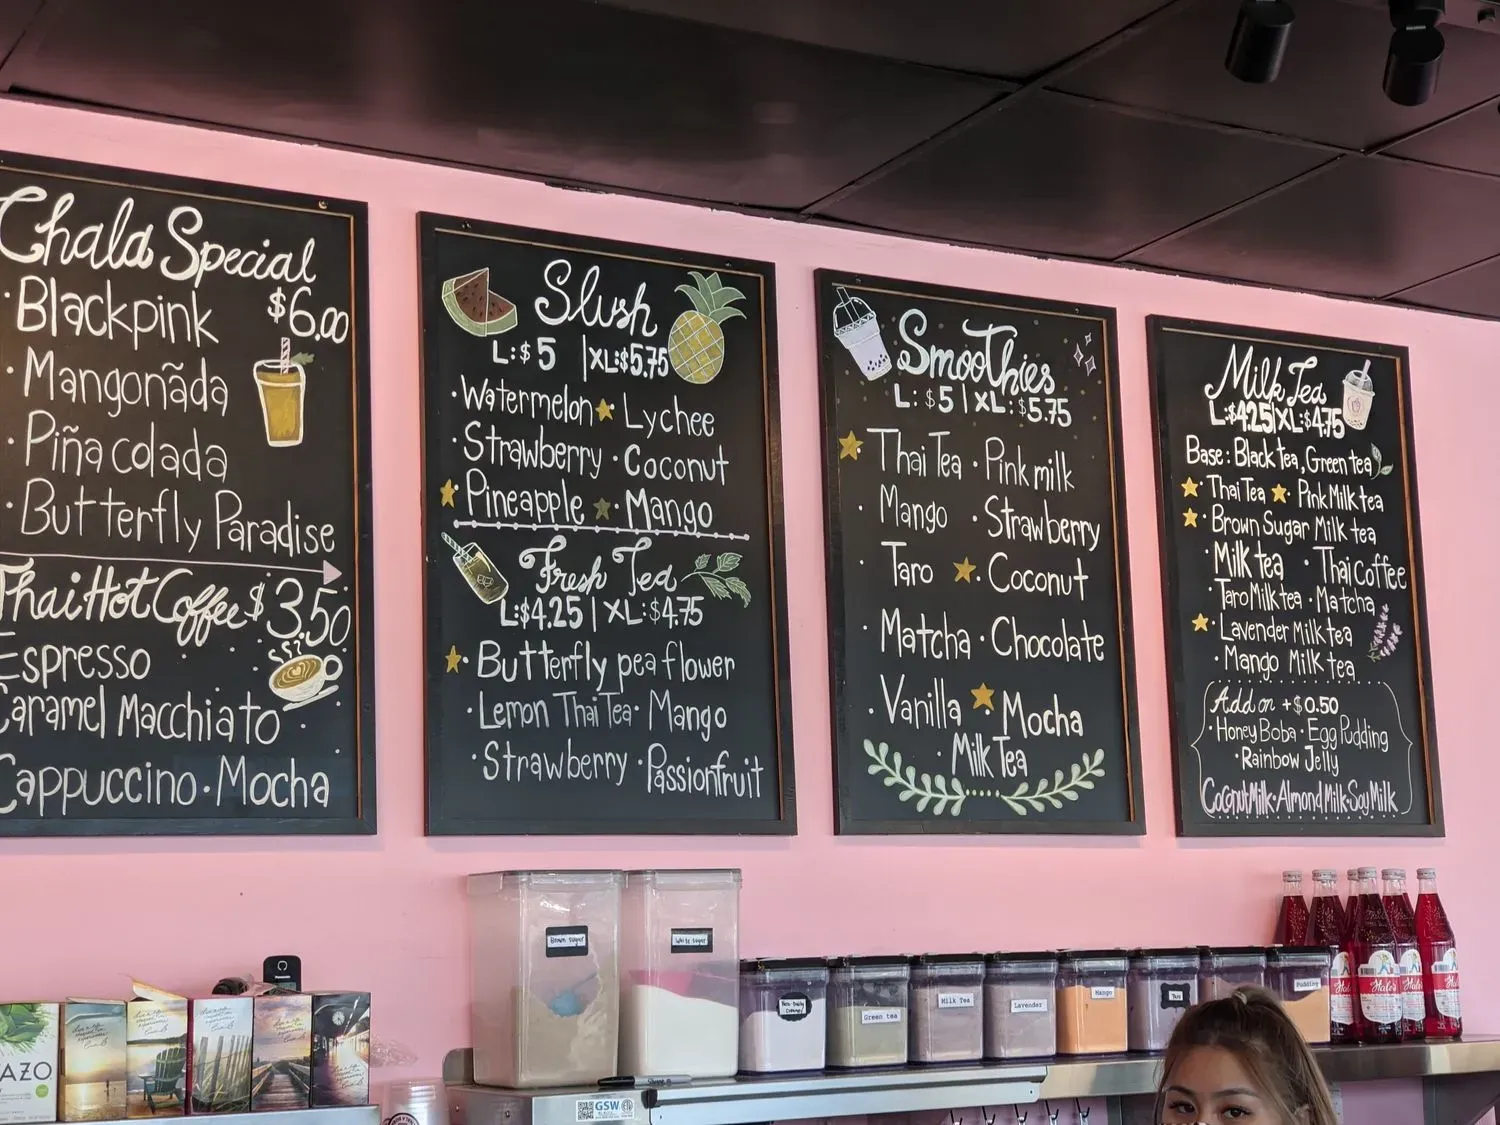 Chala Special
· Blackpink $6.00
· Mangoñãda
· Piña colada
· Butterfly Paradise
Thai Hot Coffee $3.50
Espresso
Caramel Macchiato
Cappuccino · Mocha
Slush
L:$5 | XL:$5.75
· Watermelon · Lychee
· Strawberry · Coconut
· Pineapple · Mango
Fresh Tea
L:$4.25 | XL:$4.75
· Butterfly pea flower
· Lemon Thai Tea · Mango
· Strawberry · Passionfruit
Smoothies
L:$5 | XL:$5.75
Thai Tea · Pink milk
· Mango · Strawberry
· Taro · Coconut
· Matcha · Chocolate
· Vanilla · Mocha
· Milk Tea
Milk Tea
L:$4.25|XL:$4.75
Base: Black tea, Green tea
· Thai Tea · Pink Milk tea
· Brown Sugar Milk tea
· Milk tea · Thai Coffee
· Taro Milk tea · Matcha
· Lavender Milk tea
· Mango Milk tea
Add on +$0.50
· Honey Boba · Egg Pudding
· Rainbow Jelly
Coconut Milk · Almond Milk · Soy Milk
Brown sugar
White sugar
Non-Dairy
Creamer
Green tea
Milk Tea
Lavender
Mango
Taro
Pudding
AZO
Panasonic
Sharpie
GSW
Hale's
Hale's
Hale's